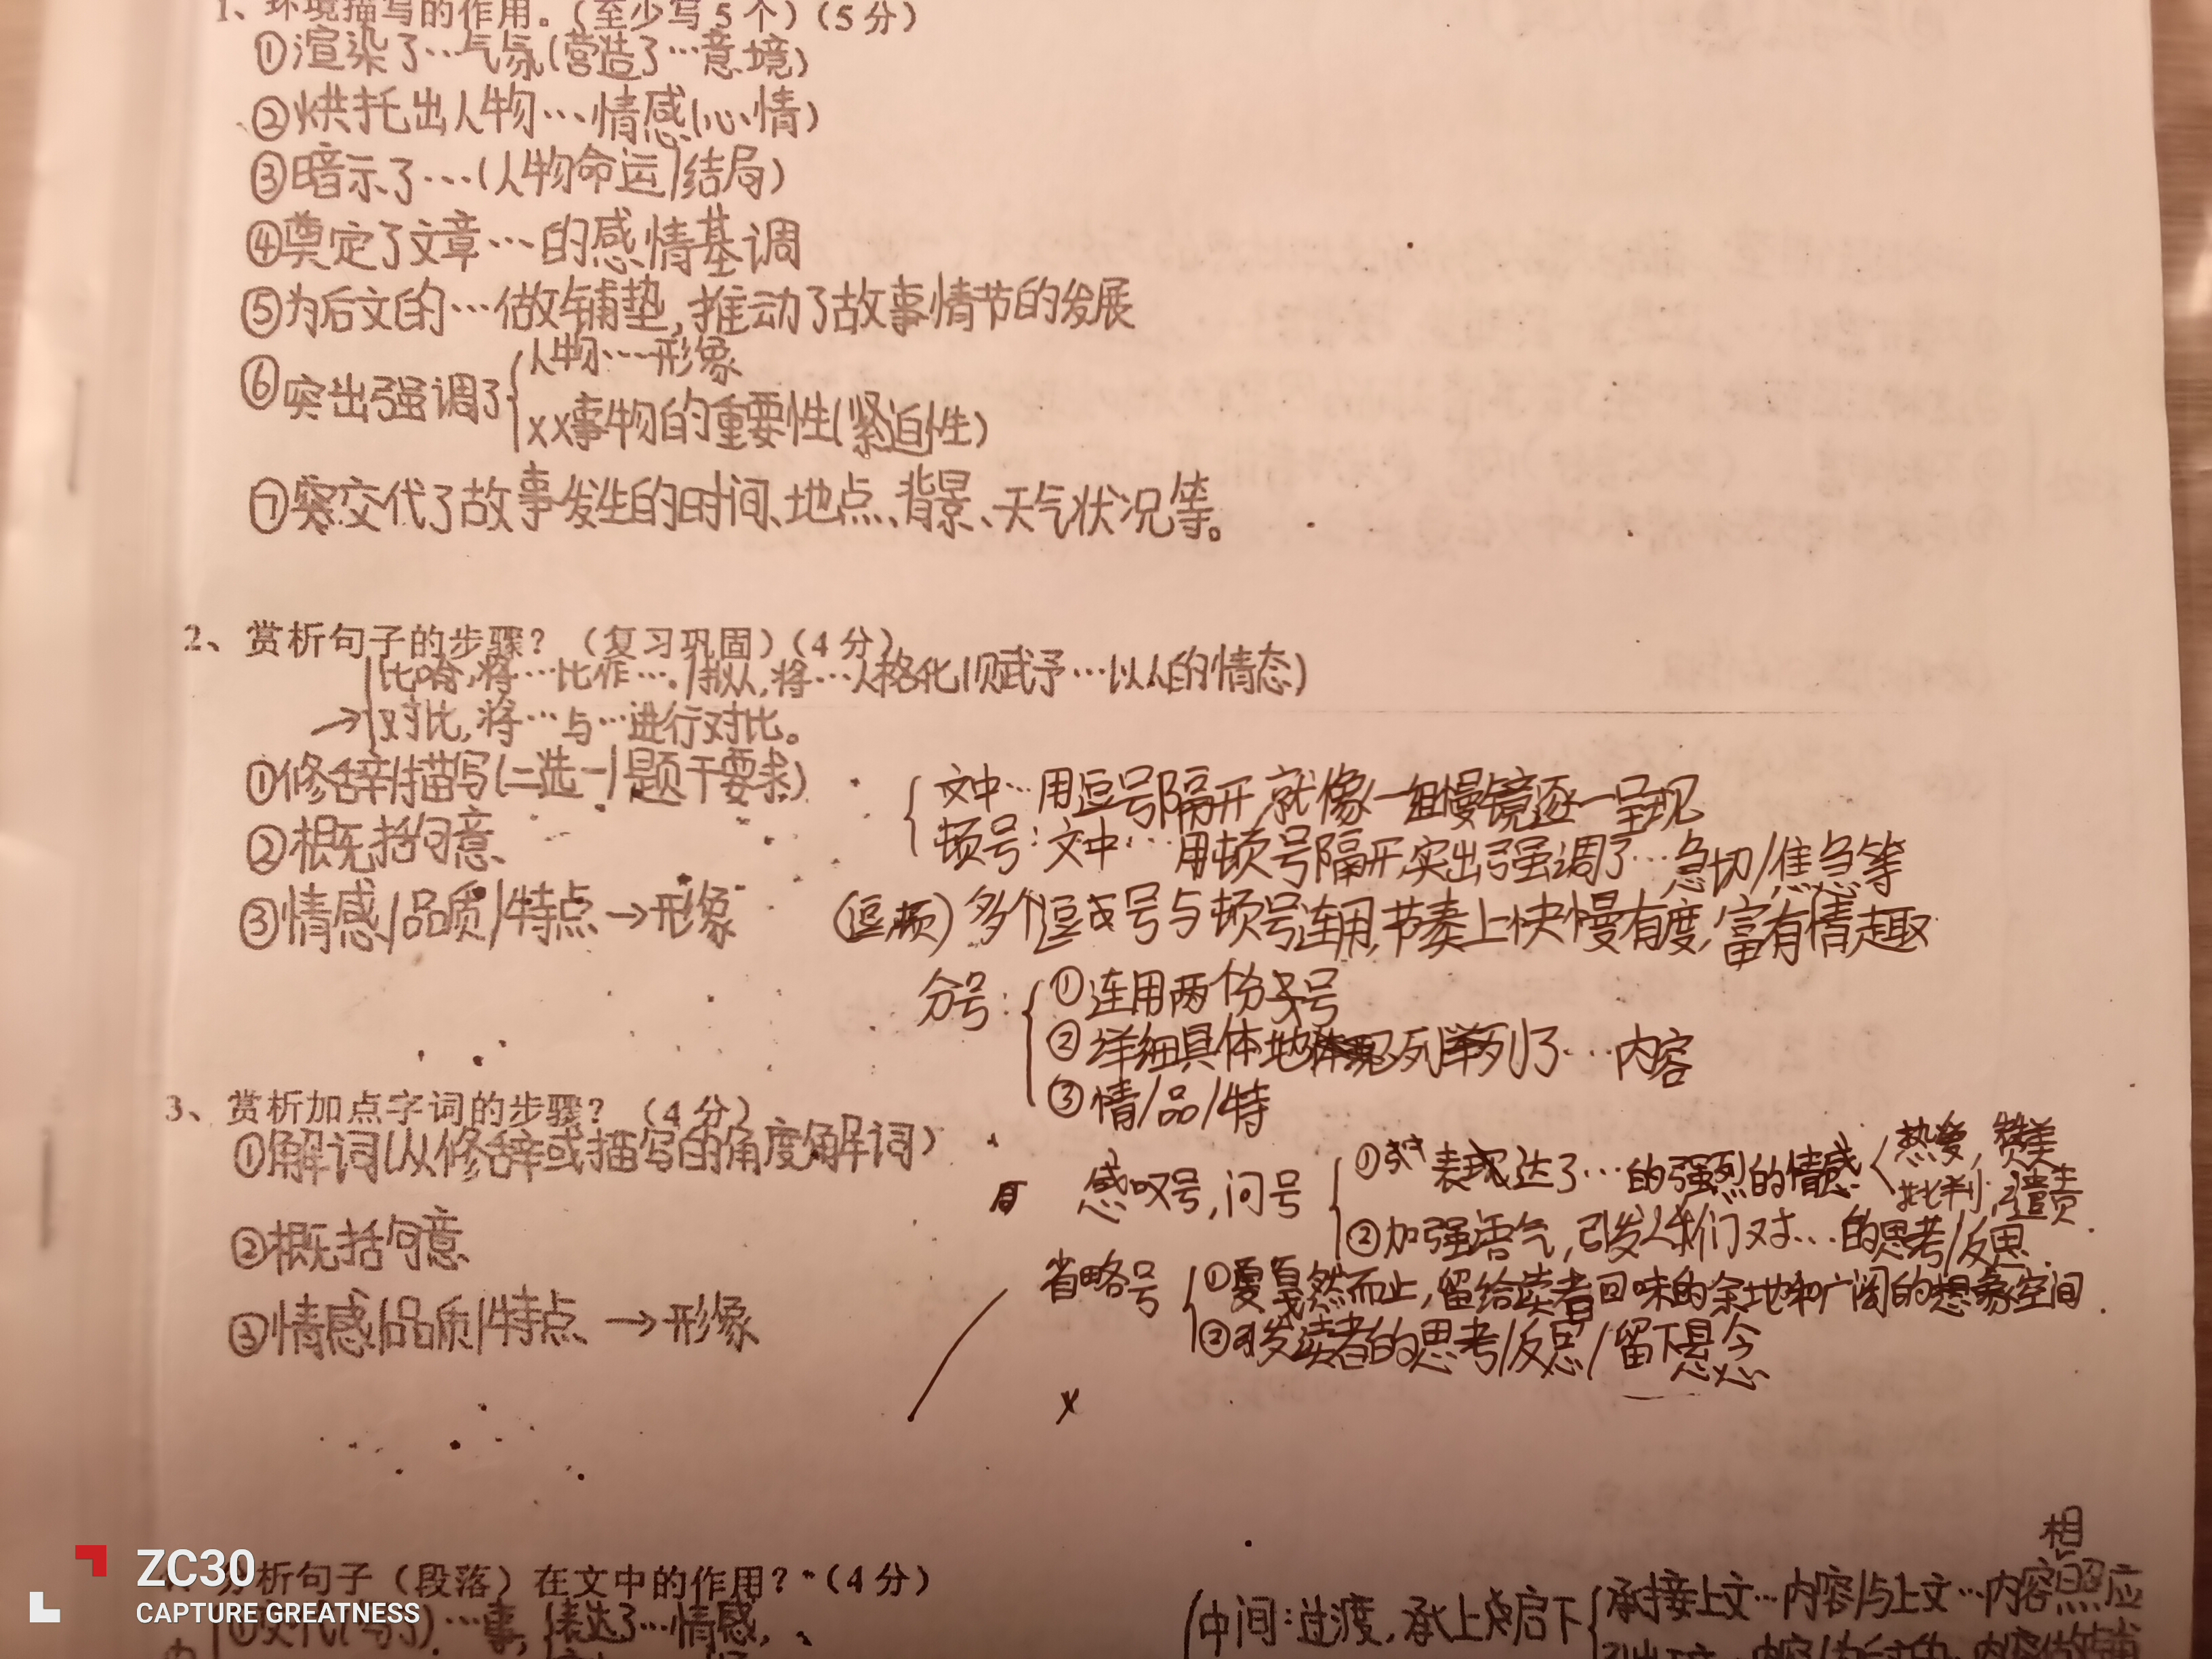 1、环境描写的作用。(至少写5个)(5分)
①渲染了…气氛(营造了…意境)
②烘托出人物…情感(心情)
③暗示了…(人物命运/结局)
④奠定了文章…的感情基调
⑤为后文的…做铺垫,推动了故事情节的发展
⑥突出强调了
人物…形象
xx事物的重要性(紧迫性)
⑦交代了故事发生的时间、地点、背景、天气状况等。
2、赏析句子的步骤?(复习巩固)(4分)
比喻,将…比作…。/拟人,将…人格化(赋予…以人的情态)
→对比,将…与…进行对比。
①修辞/描写(二选一/题干要求)
②概括句意
③情感/品质/特点→形象
文中…用逗号隔开,就像一组慢镜逐一呈现
顿号:文中…用顿号隔开,突出强调了…急切/焦急等
(逗顿)多个逗号与顿号连用,节奏上快慢有度,富有情趣
分号:
①连用两个分号
②详细具体地列举了…内容
③情/品/特
3、赏析加点字词的步骤?(4分)
①解词(从修辞或描写的角度解词)
②概括句意
③情感/品质/特点→形象
感叹号,问号
①表达了…的强烈的情感
热爱,赞美
批判,谴责
②加强语气,引发人们对…的思考/反思
省略号
①戛然而止,留给读者回味的余地和广阔的想象空间
②引发读者的思考/反思/留下悬念
x
分析句子(段落)在文中的作用?(4分)
①交代(写了)…事,表达了…情感,
中间:过渡,承上启下
相
承接上文…内容/与上文…内容照应
ZC30
CAPTURE GREATNESS